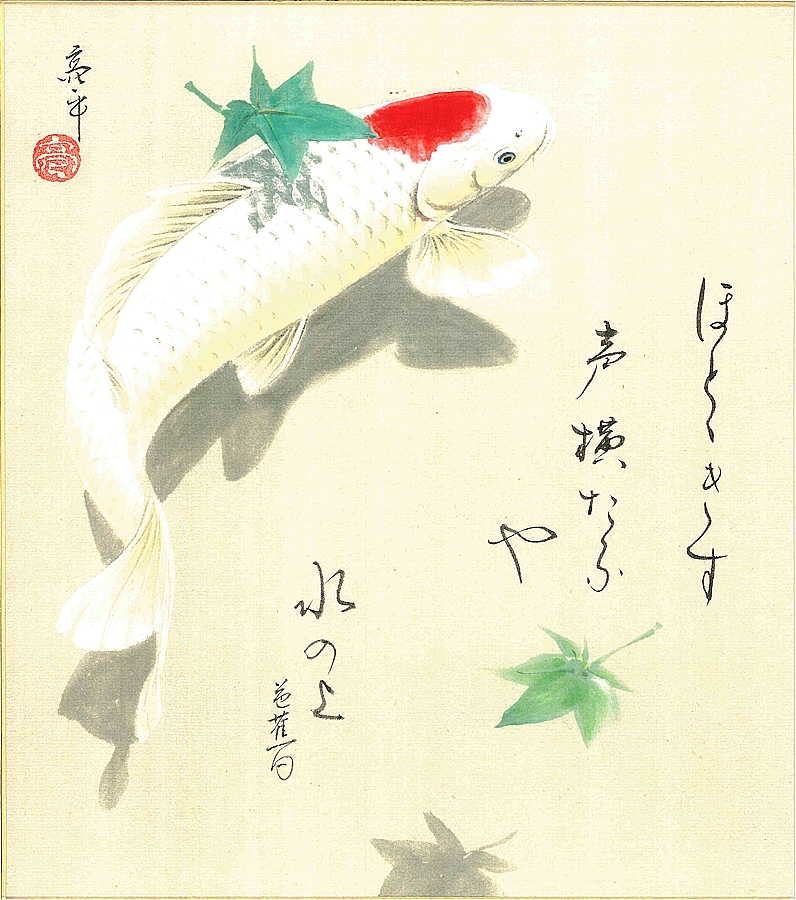 ほとゝきす
声横たふ
や
水の上
芭蕉句
亮平
亮